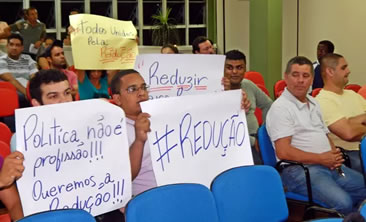 Todos Unidos
Pela
Redução
Reduzir
Política não é
profissão!!!
Queremos a
Redução!!!
#REDUÇÃO